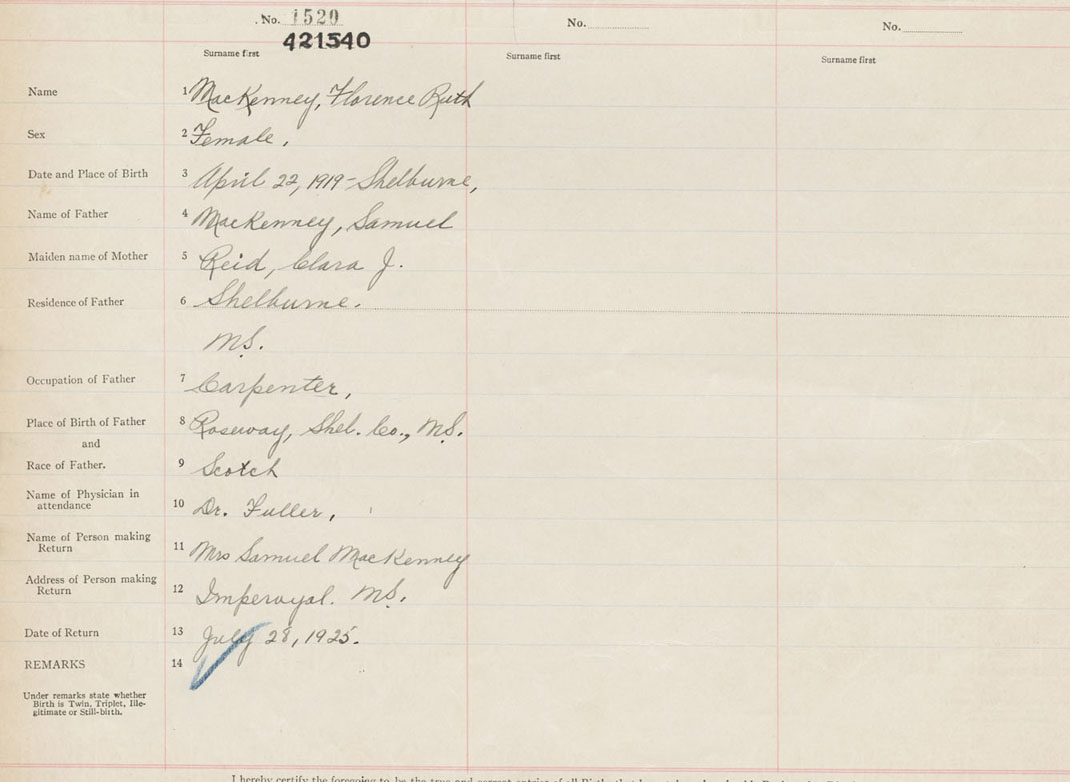 No. 1520
No.
No.
421540
Surname first
Surname first
Surname first
Name 1 MacKenney, Florence Ruth
Sex 2 Female,
Date and Place of Birth 3 April 22, 1919 - Shelburne,
Name of Father 4 MacKenney, Samuel
Maiden name of Mother 5 Reid, Clara J.
Residence of Father 6 Shelburne.
N.S.
Occupation of Father 7 Carpenter,
Place of Birth of Father 8 Roseway, Shel. Co., N.S.
and
Race of Father. 9 Scotch
Name of Physician in
attendance 10 Dr. Fuller,
Name of Person making
Return 11 Mrs Samuel MacKenney
Address of Person making
Return 12 Imperoyal. N.S.
Date of Return 13 July 28, 1925.
REMARKS 14
Under remarks state whether
Birth is Twin, Triplet, Ille-
gitimate or Still-birth.
I hereby certify the foregoing to be the true and correct entries of all Births that